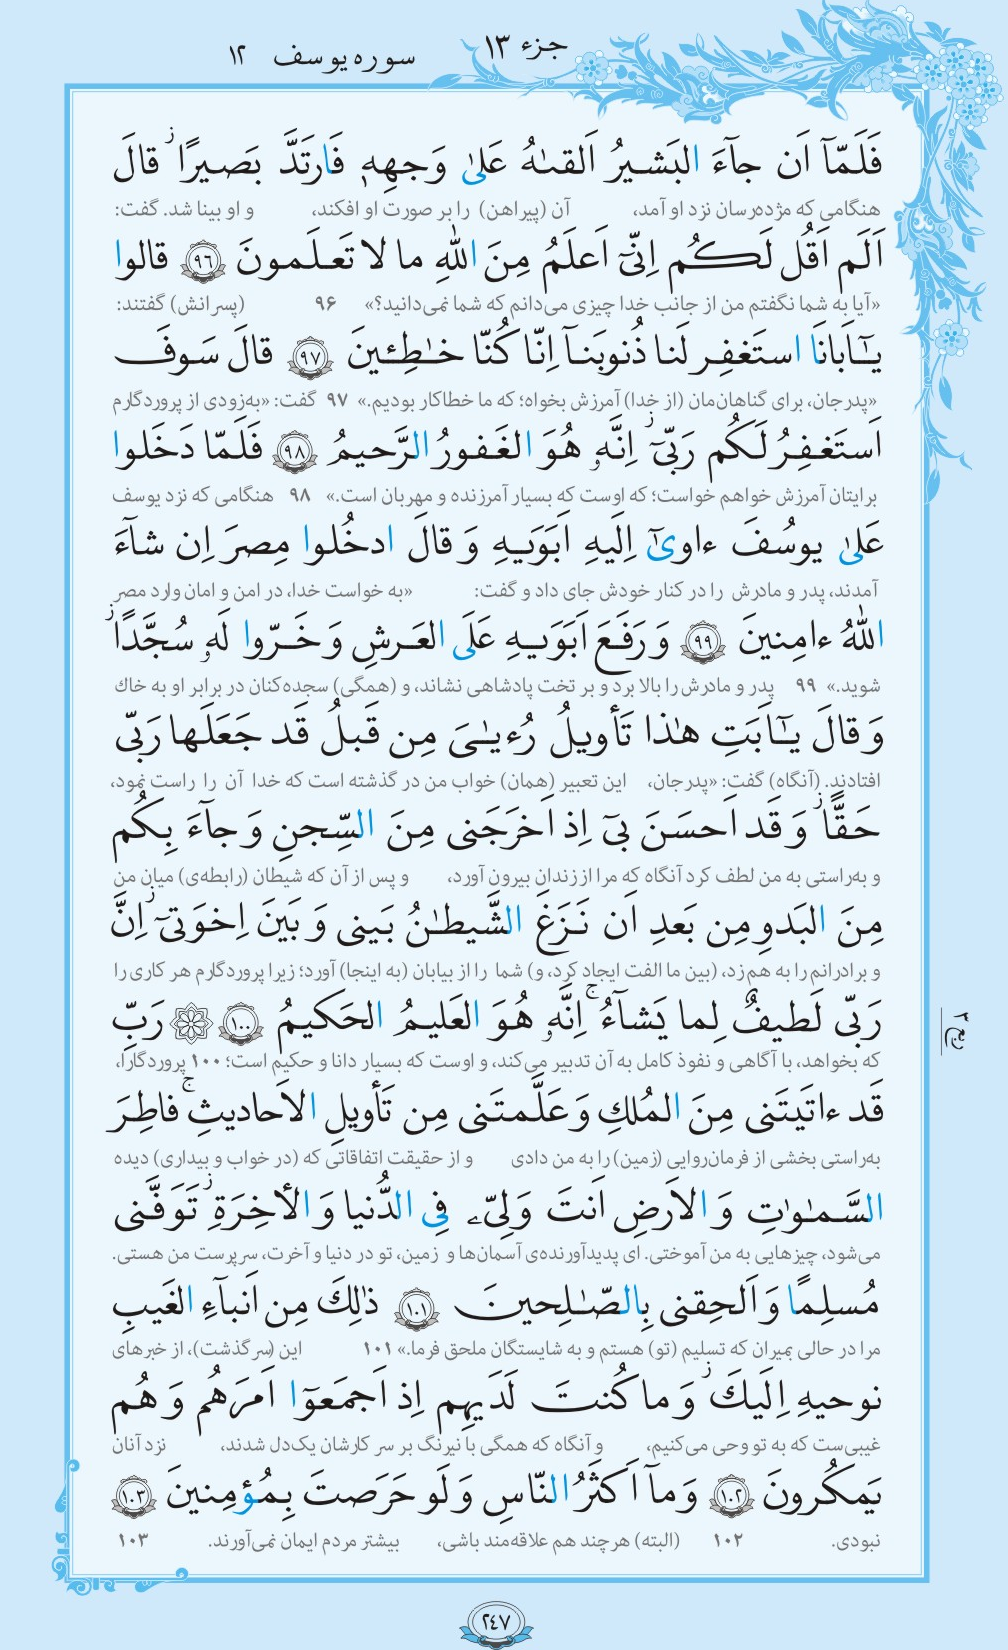 جزء ۱۳
سوره یوسف ۱۲
فَلَمّآ اَن جآءَ البَشیرُ اَلقىٰهُ عَلىٰ وَجهِهٖ فَارتَدَّ بَصیرًا ۖ قالَ
هنگامی که مژده‌رسان نزد او آمد، آن (پیراهن) را بر صورت او افکند، و او بینا شد. گفت:
اَلَم اَقُل لَکُم اِنّیٓ اَعلَمُ مِنَ اللّٰهِ ما لا تَعلَمونَ ﴿۹۶﴾ قالوا
«آیا به شما نگفتم من از جانب خدا چیزی می‌دانم که شما نمی‌دانید؟» ۹۶ (پسرانش) گفتند:
یـٰٓاَبانَا استَغفِر لَنا ذُنوبَنآ اِنّا کُنّا خـٰطِـٔینَ ﴿۹۷﴾ قالَ سَوفَ
«پدرجان، برای گناهان‌مان (از خدا) آمرزش بخواه؛ که ما خطاکار بودیم.» ۹۷ گفت: «به‌زودی از پروردگارم
اَستَغفِرُ لَکُم رَبّیٓ ۖ اِنَّهٗ هُوَ الغَفورُ الرَّحیمُ ﴿۹۸﴾ فَلَمّا دَخَلوا
برایتان آمرزش خواهم خواست؛ که اوست که بسیار آمرزنده و مهربان است.» ۹۸ هنگامی که نزد یوسف
عَلىٰ یوسُفَ ءاوىٰٓ اِلَیهِ اَبَوَیهِ وَ قالَ ادخُلوا مِصرَ اِن شآءَ
آمدند، پدر و مادرش را در کنار خودش جای داد و گفت: «به خواست خدا، در امن و امان وارد مصر
اللّٰهُ ءامِنینَ ﴿۹۹﴾ وَ رَفَعَ اَبَوَیهِ عَلَى العَرشِ وَ خَرّوا لَهٗ سُجَّدًا ۖ
شوید.» ۹۹ پدر و مادرش را بالا برد و بر تخت پادشاهی نشاند، و (همگی) سجده‌کنان در برابر او به خاک
وَ قالَ یـٰٓاَبَتِ هـٰذا تَأویلُ رُءیـٰیَ مِن قَبلُ قَد جَعَلَها رَبّی
افتادند. (آنگاه) گفت: «پدرجان، این تعبیر (همان) خواب من در گذشته است که خدا آن را راست نمود،
حَقًّا ۖ وَ قَد اَحسَنَ بیٓ اِذ اَخرَجَنی مِنَ السِّجنِ وَ جآءَ بِکُم
و به‌راستی به من لطف کرد آنگاه که مرا از زندان بیرون آورد، و پس از آن که شیطان (رابطه‌ی) میان من
مِنَ البَدوِ مِن بَعدِ اَن نَزَغَ الشَّیطـٰنُ بَینی وَ بَینَ اِخوَتیٓ ۖ اِنَّ
و برادرانم را به هم زد، (بین ما الفت ایجاد کرد، و) شما را از بیابان (به اینجا) آورد؛ زیرا پروردگارم هر کاری را
رَبّی لَطیفٌ لِما یَشآءُ ۚ اِنَّهٗ هُوَ العَلیمُ الحَکیمُ ﴿۱۰۰﴾ رَبِّ
که بخواهد، با آگاهی و نفوذ کامل به آن تدبیر می‌کند، و اوست که بسیار دانا و حکیم است؛ ۱۰۰ پروردگارا،
قَد ءاتَیتَنی مِنَ المُلکِ وَ عَلَّمتَنی مِن تَأویلِ الاَحادیثِ ۚ فاطِرَ
به‌راستی بخشی از فرمان‌روایی (زمین) را به من دادی و از حقیقت اتفاقاتی که (در خواب و بیداری) دیده
السَّمـٰوٰتِ وَ الاَرضِ اَنتَ وَلِیّٖ فِی الدُّنیا وَ الأخِرَةِ ۖ تَوَفَّنی
می‌شود، چیزهایی به من آموختی. ای پدیدآورنده‌ی آسمان‌ها و زمین، تو در دنیا و آخرت، سرپرست من هستی.
مُسلِمًا وَ اَلحِقنی بِالصّـٰلِحینَ ﴿۱۰۱﴾ ذٰلِکَ مِن اَنبآءِ الغَیبِ
مرا در حالی بمیران که تسلیم (تو) هستم و به شایستگان ملحق فرما.» ۱۰۱ این (سرگذشت)، از خبرهای
نوحیهِ اِلَیکَ ۖ وَ ما کُنتَ لَدَیهِم اِذ اَجمَعوٓا اَمرَهُم وَ هُم
غیبی‌ست که به تو وحی می‌کنیم، و آنگاه که همگی با نیرنگ بر سر کارشان یک‌دل شدند، نزد آنان
یَمکُرونَ ﴿۱۰۲﴾ وَ مآ اَکثَرُ النّاسِ وَ لَو حَرَصتَ بِمُؤمِنینَ ﴿۱۰۳﴾
نبودی. ۱۰۲ (البته) هرچند هم علاقه‌مند باشی، بیشتر مردم ایمان نمی‌آورند. ۱۰۳
ربع ۳
۲۴۷